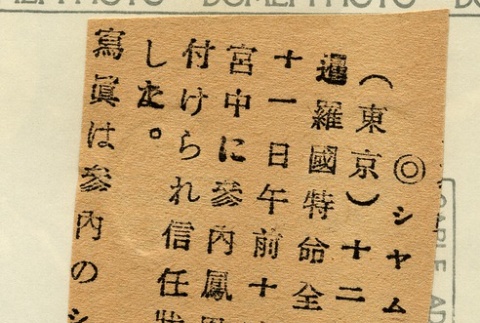 DOMEI PHOTO
◎シヤム
(東京)十二
暹羅國特命全
十一日午前十
宮中に參內鳳
付けられ信任狀
した。
寫眞は參內のシ
CABLE AD